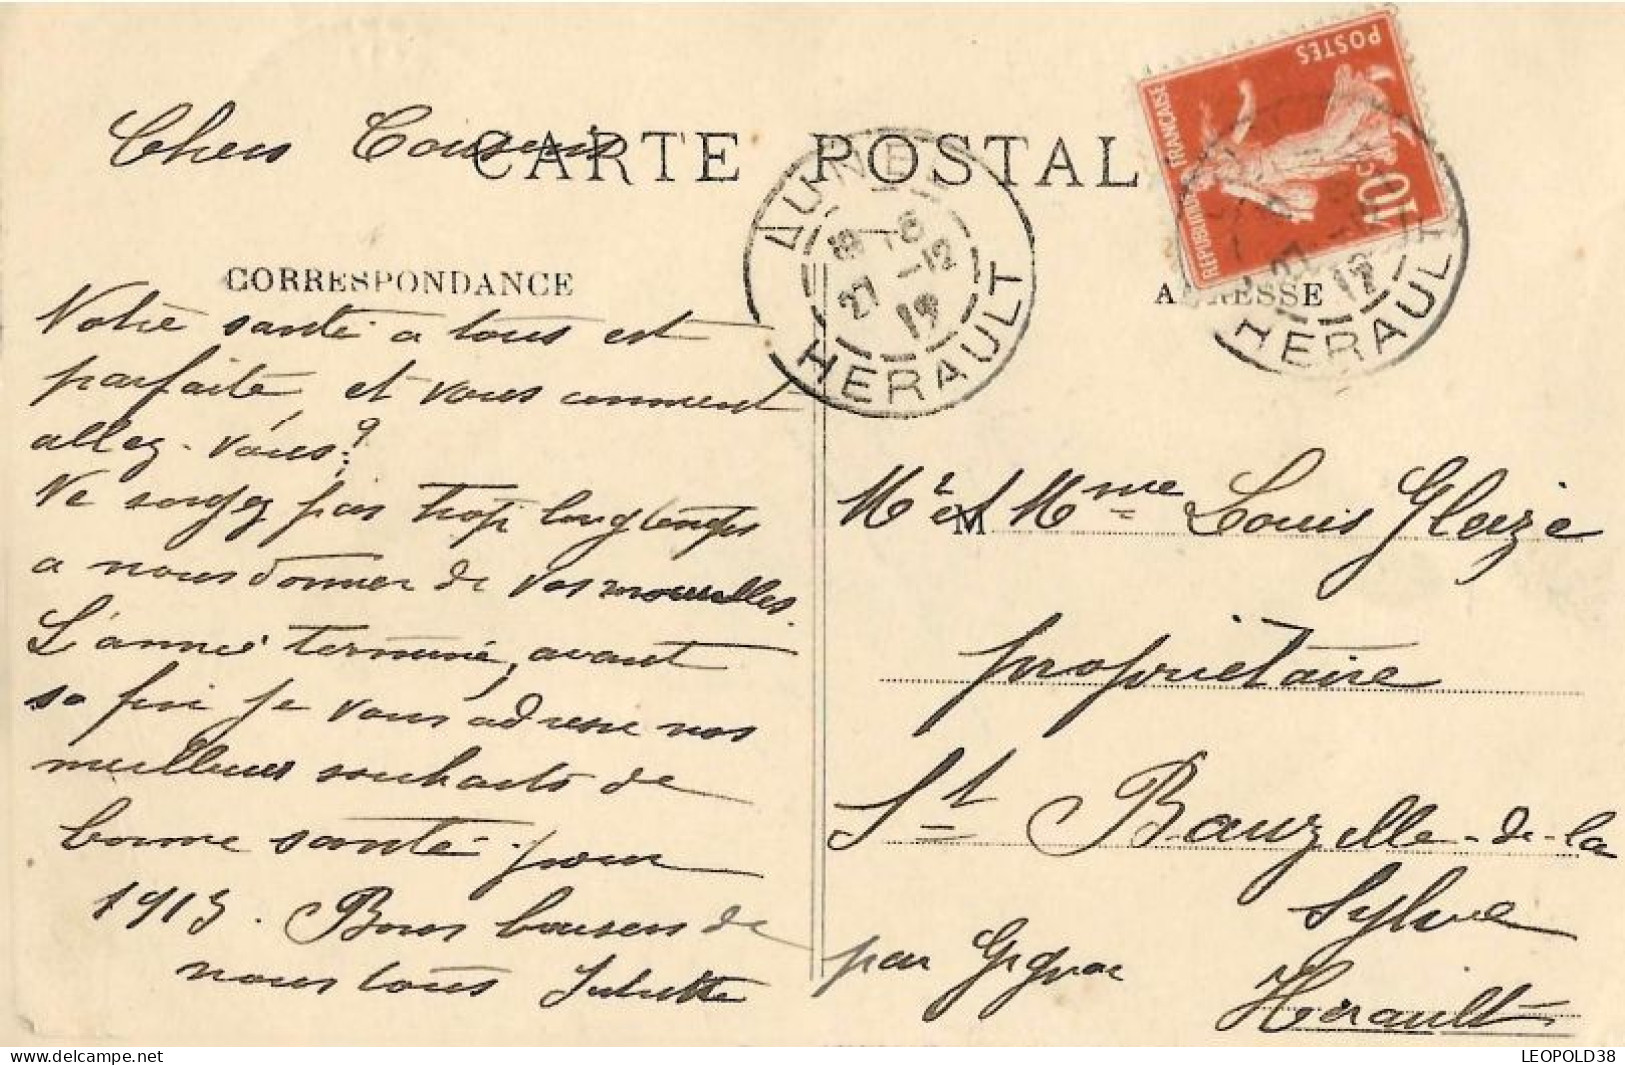 Chers Cousins
CARTE POSTALE
CORRESPONDANCE
Notre santé a tous est
parfaite et vous comment
allez-vous?
Ne soyez pas trop longtemps
a nous donner de vos nouvelles.
L'année terminé, avant
sa fin je vous adresse nos
meilleurs souhaits de
bonne santé pour
1913. Bons baisers de
nous tous Juliette
18-8
27-12
12
HERAULT
POSTES
REPUBLIQUE FRANÇAISE
10c
27
12
HERAULT
ADRESSE
M
Mr et Mme Louis Glaize
propriétaire
St Bauzille-de-la
Sylve
par Gignac
Hérault
LEOPOLD38